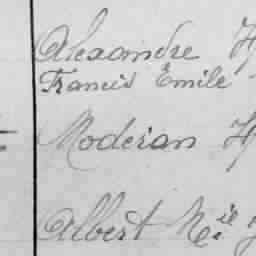 Alexandre H
Francis Emile
Moderan H
Albert N.ie